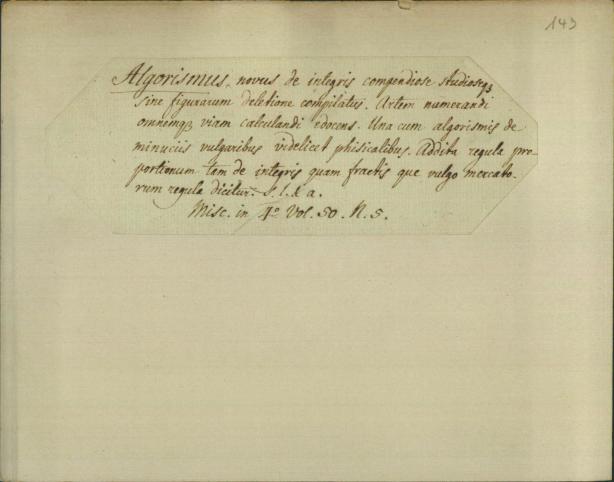 143
Algorismus, novus de integris compendiose studioseqȝ
sine figurarum deletione compilatus. Artem numerandi
omnemqȝ viam calculandi edocens. Una cum algorismis de
minuciis vulgaribus videlicet phisicalibus. Addita regula pro-
portionum tam de integris quam fractis que vulgo mercato-
rum regula dicitur. S. l. & a.
Misc. in 4º Vol. 50. N. 5.